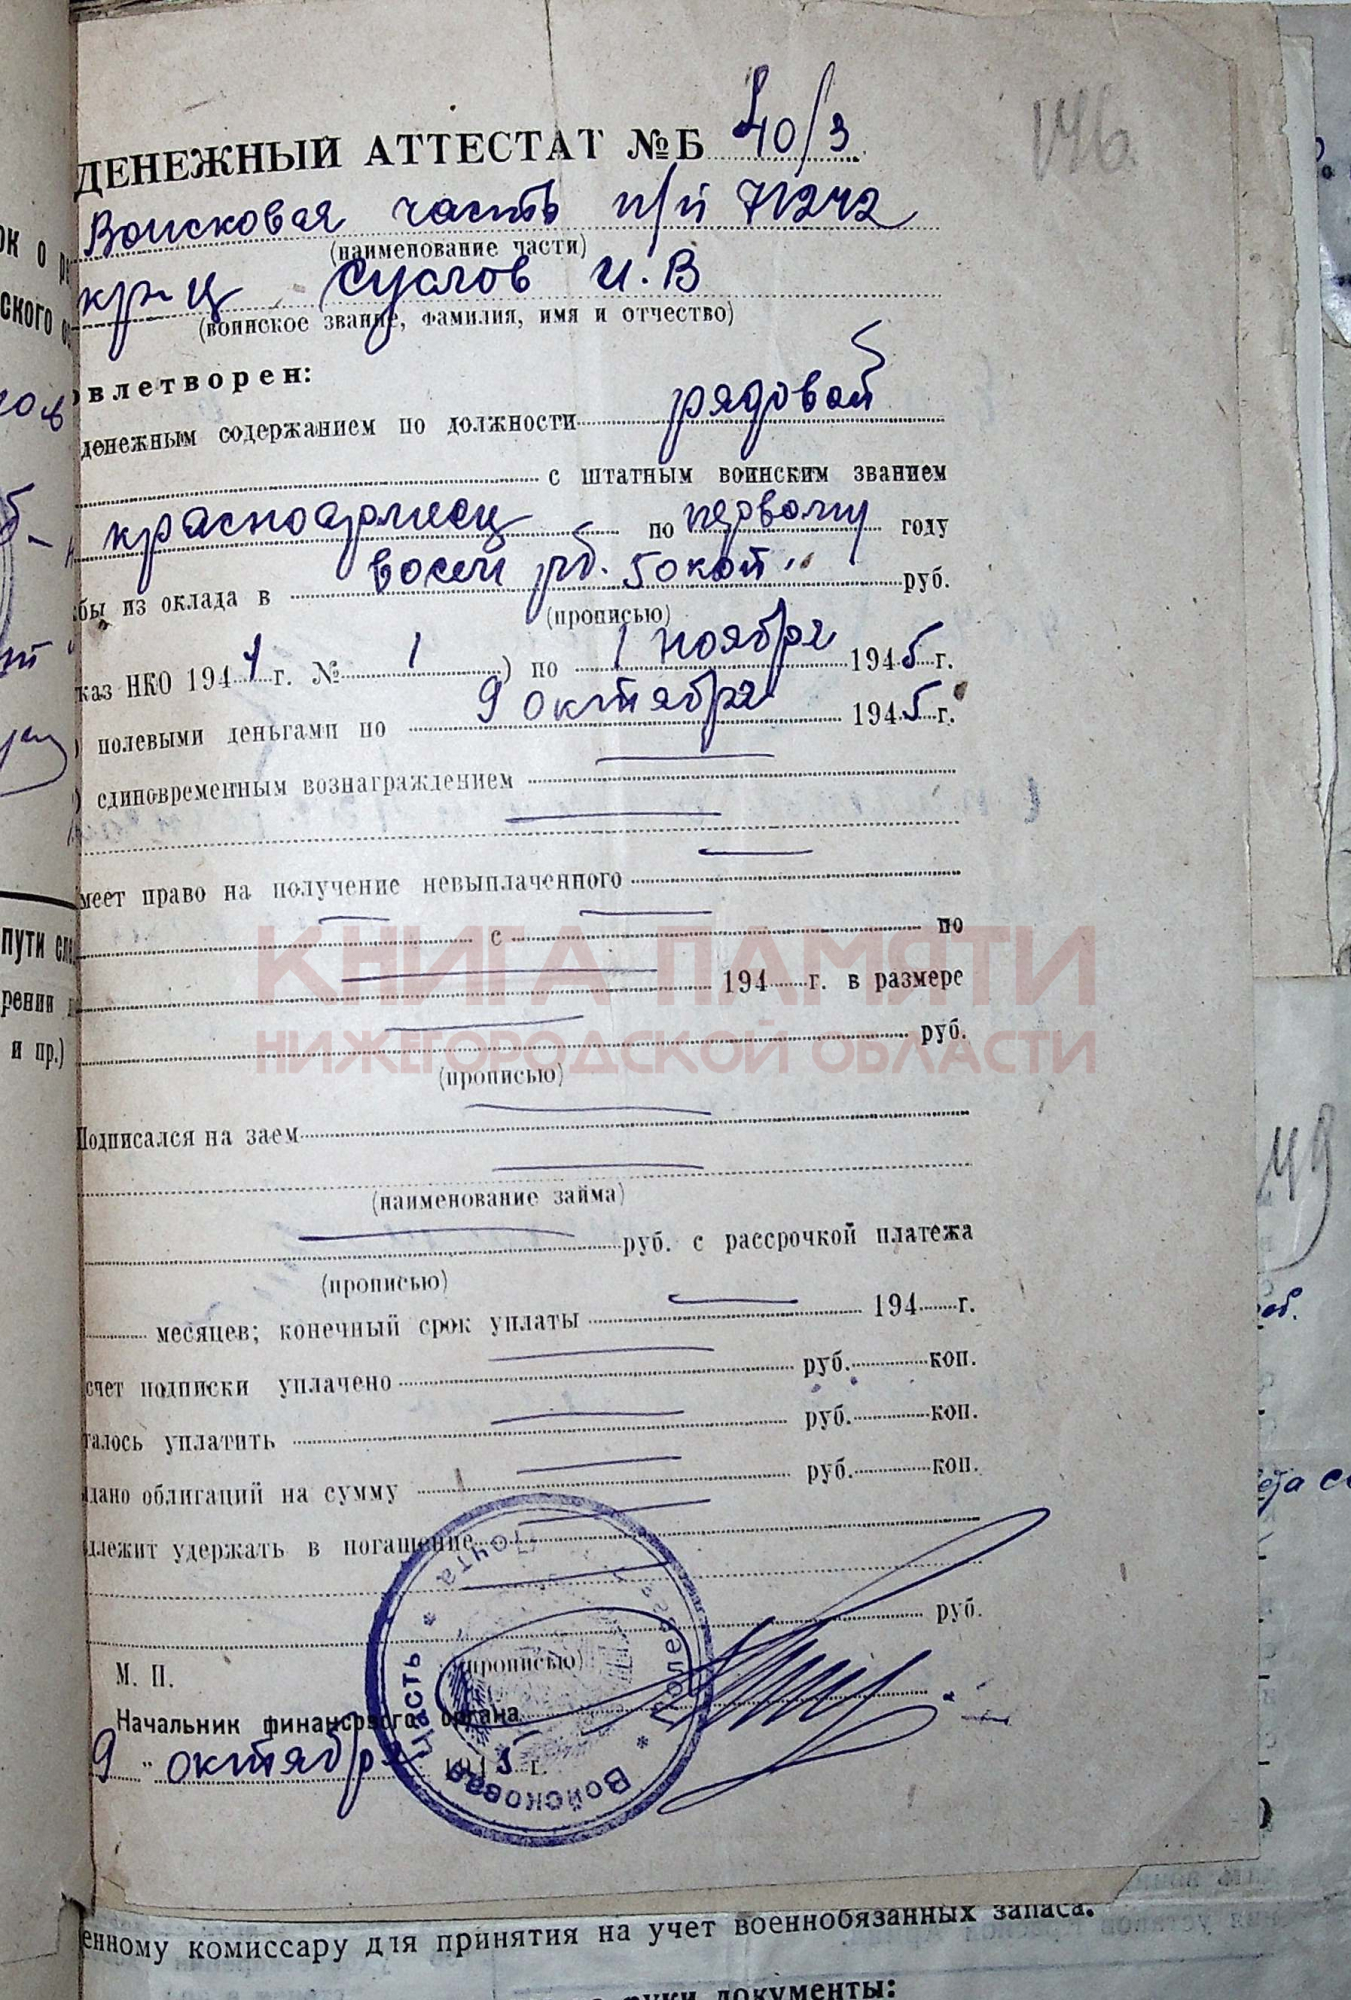 146.
ДЕНЕЖНЫЙ АТТЕСТАТ №Б 40/3
Воисковая часть п/п 71242
(наименование части)
кр-ц Суслов И.В
(воинское звание, фамилия, имя и отчество)
овлетворен:
денежным содержанием по должности рядовой
с штатным воинским званием
красноармеец по первому году
бы из оклада в восем рб. 50 коп. руб.
(прописью)
каз НКО 1941 г. № 1 ) по 1 ноября 1945 г.
) полевыми деньгами по 9 октября 1945 г.
) единовременным вознаграждением
меет право на получение невыплаченного
с по
194 г. в размере
руб.
(прописью)
КНИГА ПАМЯТИ
НИЖЕГОРОДСКОЙ ОБЛАСТИ
Подписался на заем
(наименование займа)
руб. с рассрочкой платежа
(прописью)
месяцев; конечный срок уплаты 194 г.
счет подписки уплачено руб. коп.
талось уплатить руб. коп.
дано облигаций на сумму руб. коп.
длежит удержать в погашение
руб.
(прописью)
М. П.
Начальник финансового органа
9 " октября 1945 г.
Войсковая часть * Полевая Почта *
енному комиссару для принятия на учет военнобязанных запаса.
руки документы:
ок о
ского
пути сле
рении
и пр.)